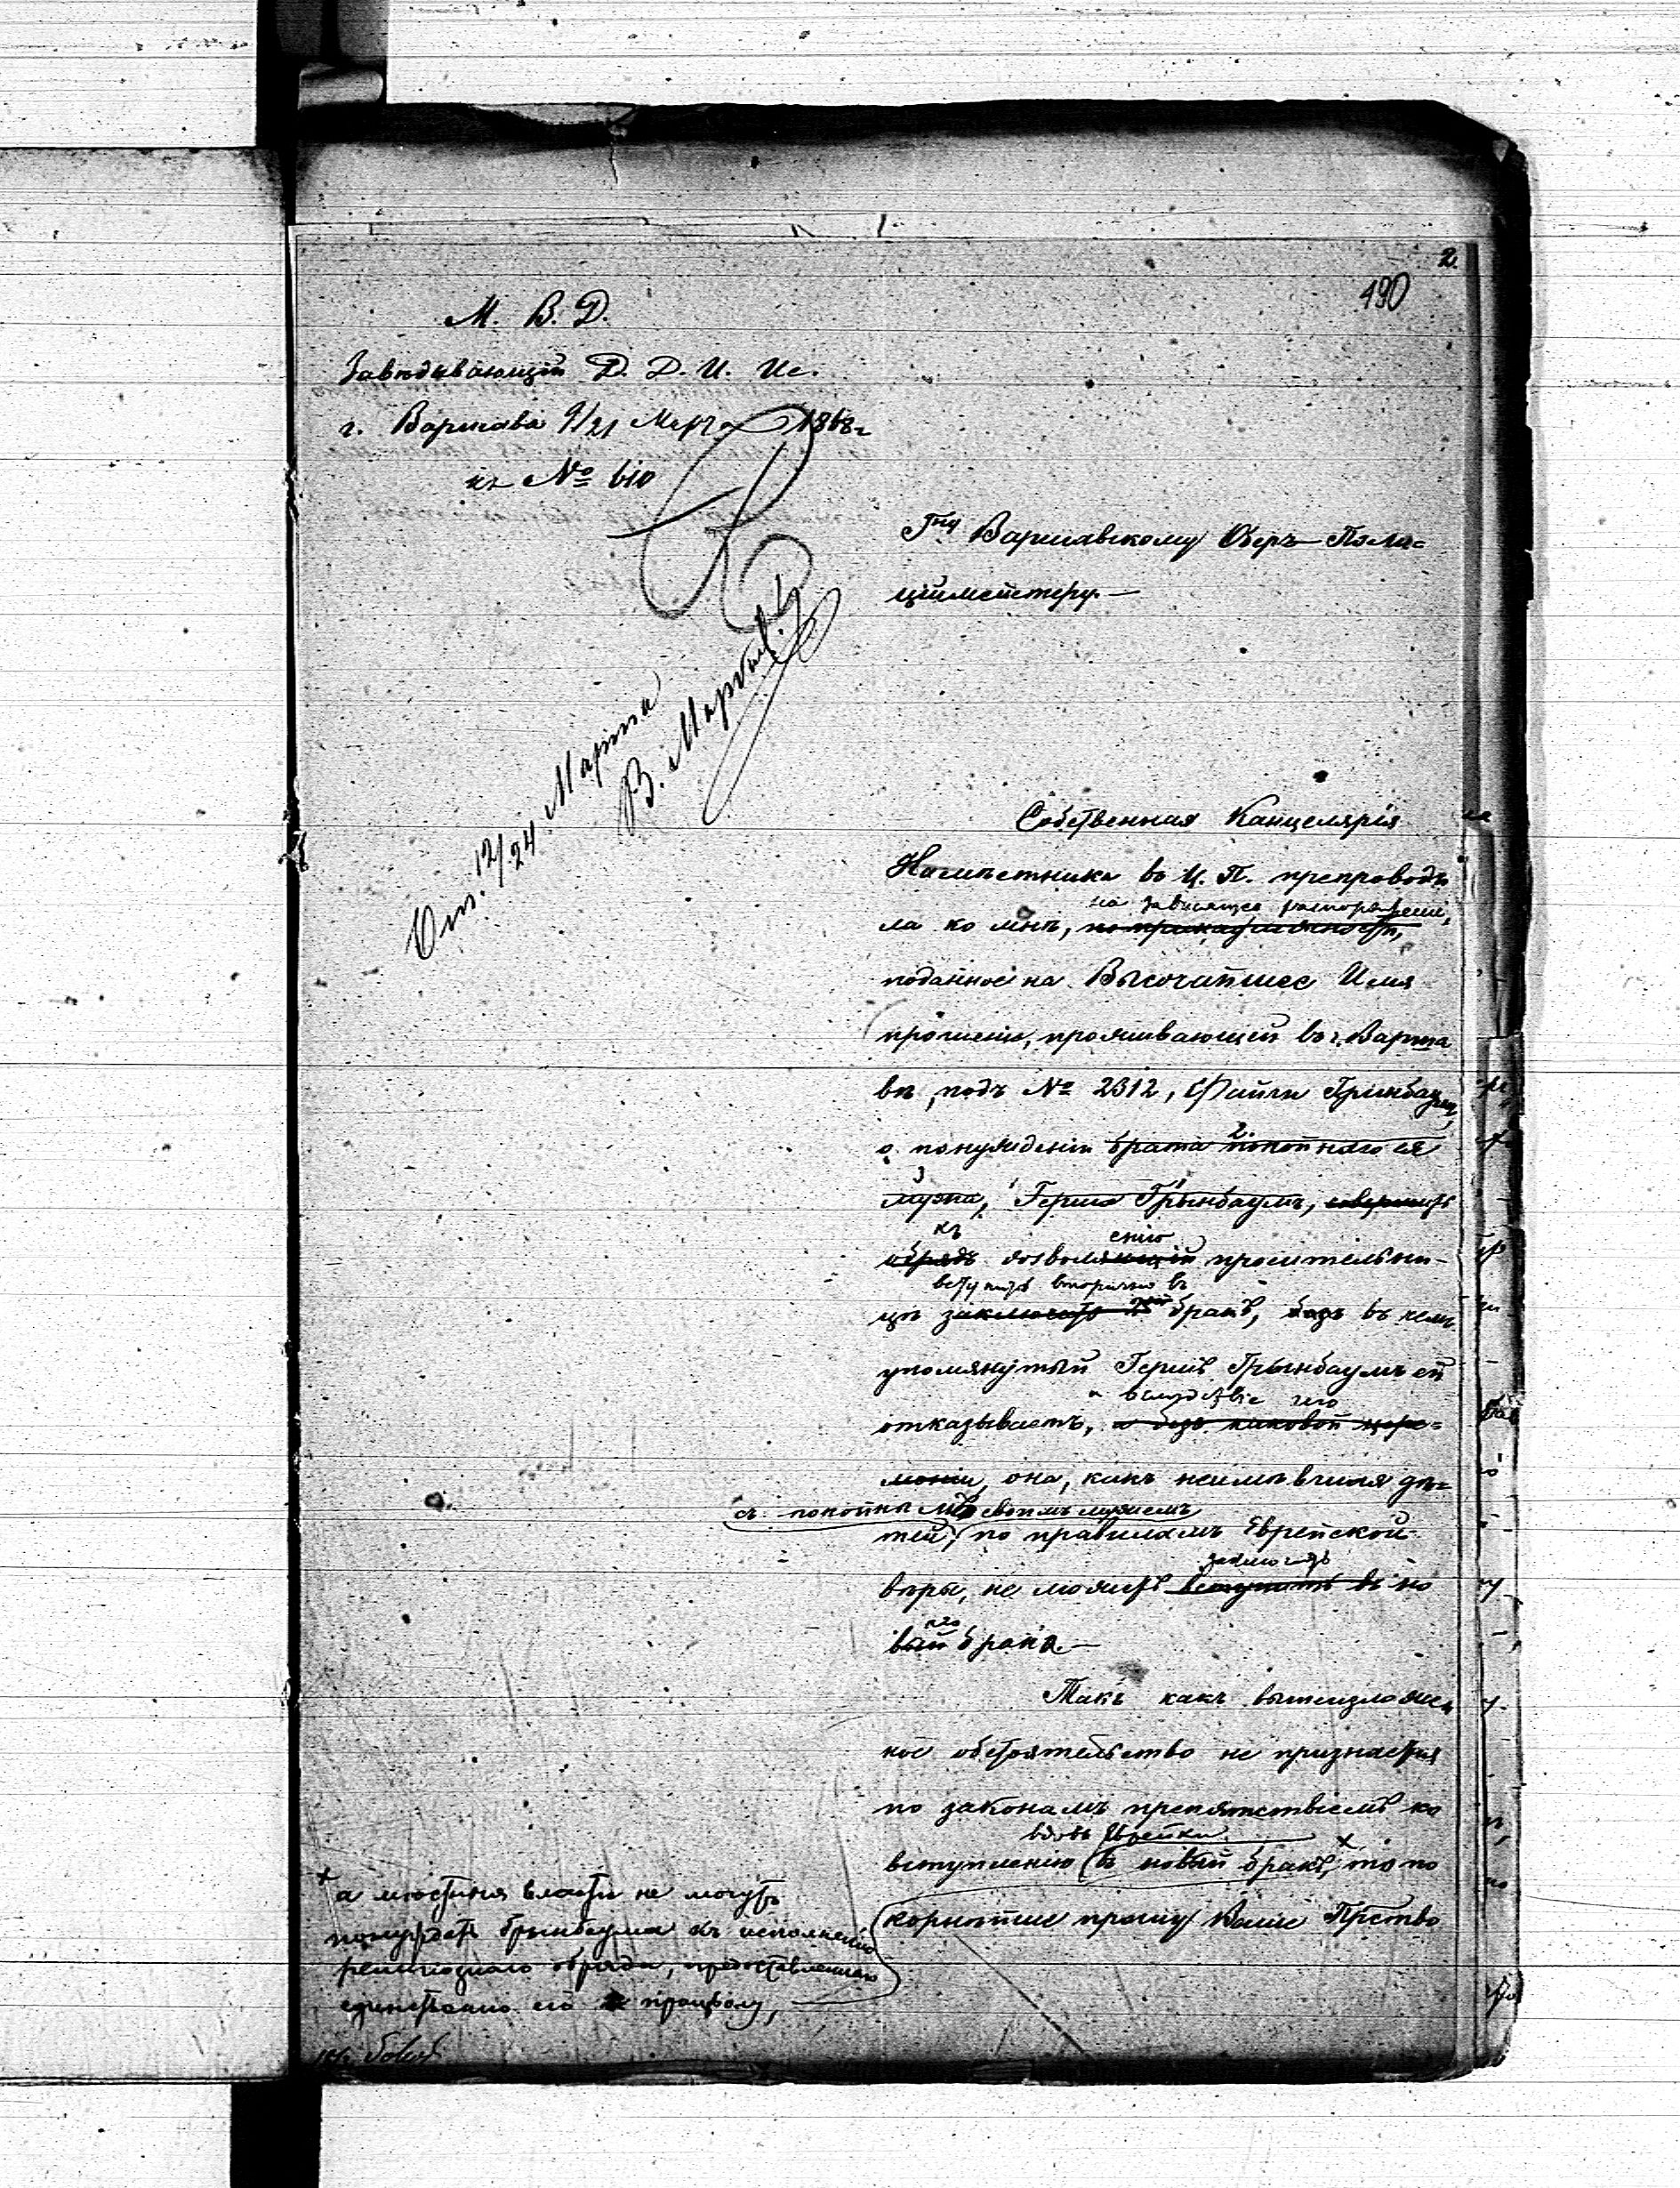 2.
190
М. В. Д.
Завѣдывающій Д. Д. И. Ис.
г. Варшава 9/21 Марта 1868 г
№ 610
Отп. 12/24 Марта
Гну Варшавскому Оберъ-Поли-
ціймейстеру.—
Собственная Канцелярія
Намѣстника въ Ц. П. препроводи
на зависящее распоряженіе,
ла ко мнѣ, по принадлежности,
поданное на Высочайшее Имя
прошеніе, проживающей въ г. Варша
вѣ, подъ № 2312, Файги Гринбаумъ,
о понужденіи брата 2. покойнаго ея
3
мужа, Герша Грынбаума, совершить
къ енію
обрядъ дозволяющій просительни-
вступить вторично въ
цѣ заключить бракъ, въ чемъ
упомянутый Гершъ Грынбаумъ ей
а вслѣдствіе чего
отказываетъ, а безъ каковой цере-
моніи, она, какъ неимѣвшая дѣ-
съ покойнымъ своимъ мужемъ
тей, по правиламъ Еврейской
заключить
вѣры, не можетъ вступить въ но
ваго
вый брака.—
Такъ какъ вышеизложен
ное обстоятельство не признается
по законамъ препятствіемъ ко
вдовы Еврейки
вступленію въ новый бракъ, × то по
корнѣйше прошу Ваше Прство
× а мѣстныя власти не могутъ
понуждать Грынбаума къ исполненію
религіознаго обряда, предоставленнаго
единственно его произволу,